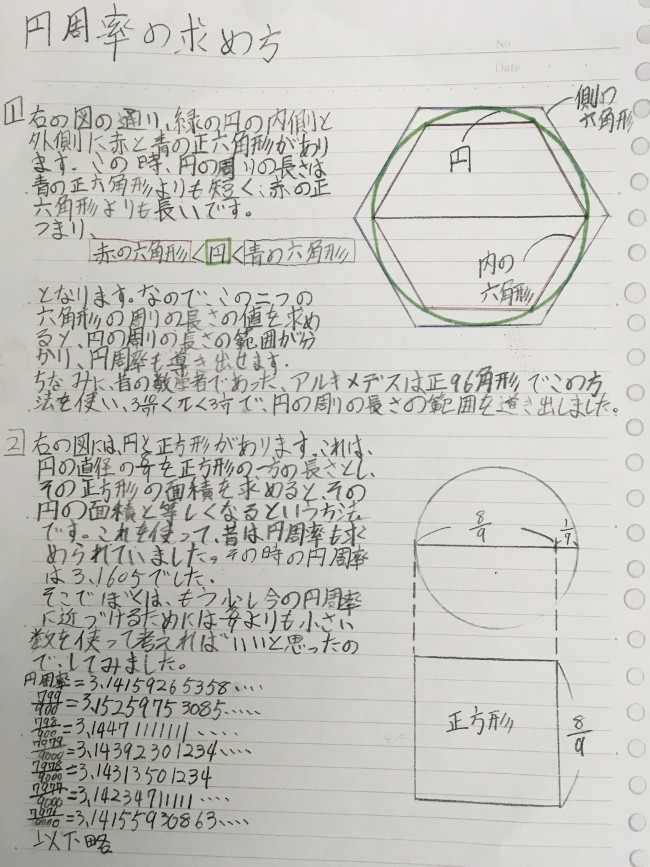 円周率の求め方
No.
Date
1 右の図の通り、緑の円の内側と
外側に赤と青の正六角形があり
ます。この時、円の周りの長さは
青の正六角形よりも短く、赤の正
六角形よりも長いです。
つまり、
赤の六角形<円<青の六角形
側の
六角形
円
内の
六角形
となります。なので、この二つの
六角形の周りの長さの値を求め
ると、円の周りの長さの範囲が分
かり、円周率も導き出せます。
ちなみに、昔の数学者であった、アルキメデスは正96角形でこの方
法を使い、3 10/71<π<3 1/7で、円の周りの長さの範囲を導き出しました。
2 右の図には、円と正方形があります。これは、
円の直径の8/9を正方形の一方の長さとし、
その正方形の面積を求めると、その
円の面積と等しくなるという方法
です。これを使って、昔は円周率も求
められていました。その時の円周率
は3.1605でした。
そこでぼくは、もう少し今の円周率
に近づけるためには8/9よりも小さい
数を使って考えればいいと思ったの
で、してみました。
円周率=3.14159265358....
799/900=3.15259753085.....
798/900=3.14471111111....
7979/9000=3.14392301234....
7978/9000=3.14313501234
7977/9000=3.14234711111....
7976/9000=3.14155930863....
以下略
8/9
1/9
正方形
8/9